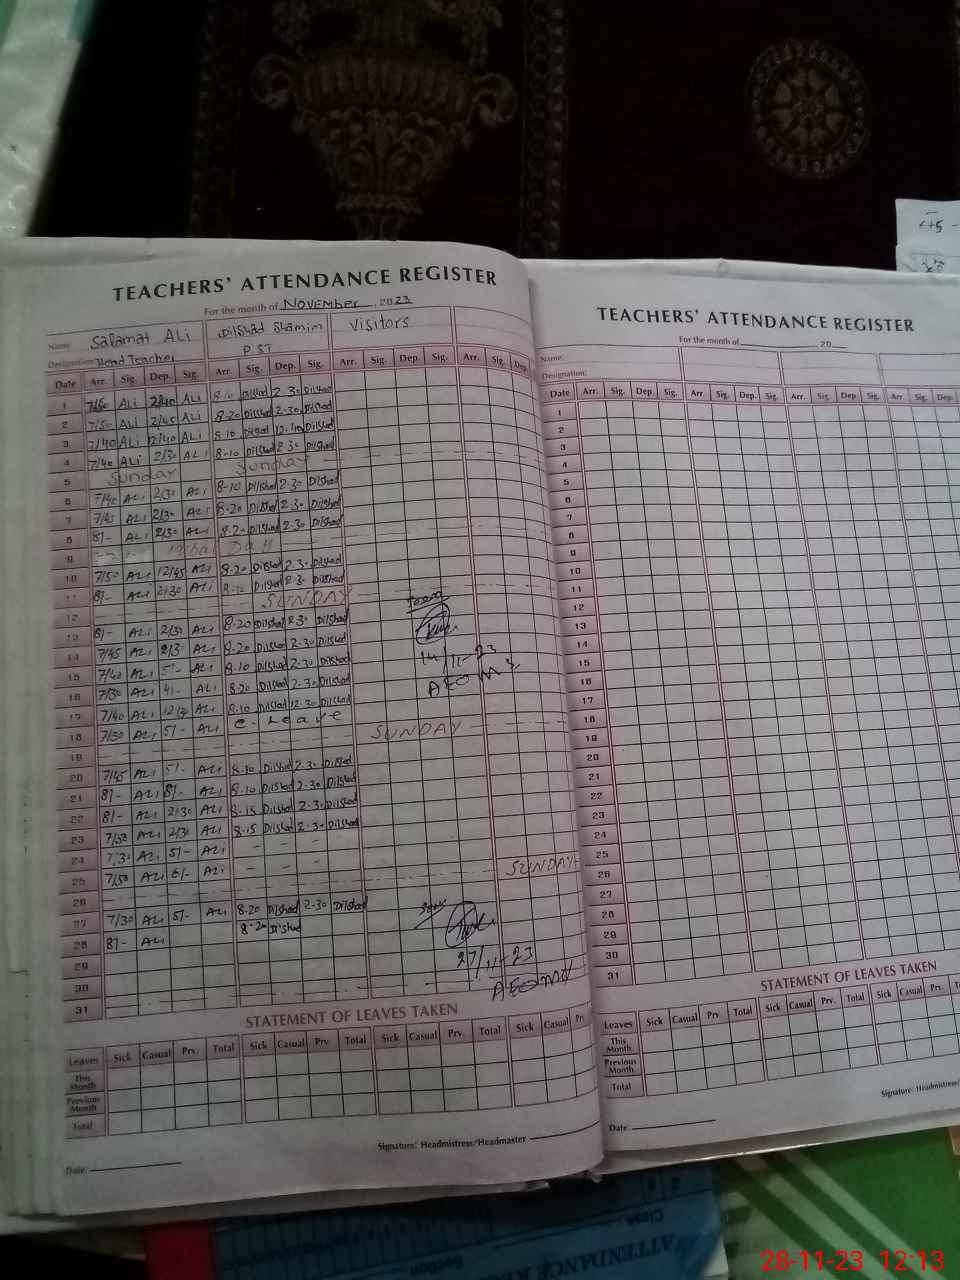 TEACHERS' ATTENDANCE REGISTER
For the month of November, 2023
Name: Salamat Ali Dilshad Shamim Visitors
Designation: Head Teacher P.S.T
Date Arr. Sig. Dep. Sig. Arr. Sig. Dep. Sig. Arr. Sig. Dep. Sig. Arr. Sig. Dep.
1 7/50 ALi 2/40 ALi 8-10 Dilshad 2-30 Dilshad
2 7/50 ALi 2/45 ALi 8-20 Dilshad 2-30 Dilshad
3 7/40 ALi 12/40 ALi 8-10 Dilshad 12-10 Dilshad
4 7/40 ALi 2/30 ALi 8-10 Dilshad 2-30 Dilshad
5 Sunday Sunday
6 7/40 ALi 2/30 ALi 8-10 Dilshad 2-30 Dilshad
7 7/45 ALi 2/30 ALi 8-20 Dilshad 2-30 Dilshad
8 8/- ALi 2/30 ALi 8-20 Dilshad 2-30 Dilshad
9 Iqbal Day
10 7/50 ALi 12/45 ALi 8-20 Dilshad 2-30 Dilshad
11 8/- ALi 2/30 ALi Dilshad 2-30 Dilshad
12 SUNDAY
13 8/- ALi 2/30 ALi 8-20 Dilshad 2-30 Dilshad
14 7/45 ALi 2/30 ALi 8-20 Dilshad 2-30 Dilshad
15 7/40 ALi 5/- ALi 8-10 Dilshad 2-30 Dilshad
14/11-23
16 7/30 ALi 4/- ALi 8-20 Dilshad 2-30 Dilshad
AEO
17 7/40 ALi 12/30 ALi 8-10 Dilshad 12-30 Dilshad
18 7/30 ALi 5/- ALi C-Leave
19 SUNDAY
20 7/45 ALi 5/- ALi 8-10 Dilshad 2-30 Dilshad
21 8/- ALi 8/- ALi 8-10 Dilshad 2-30 Dilshad
22 8/- ALi 2/30 ALi 8-15 Dilshad 2-30 Dilshad
23 7/50 ALi 2/30 ALi 8-15 Dilshad 2-30 Dilshad
24 7/30 ALi 5/- ALi - - -
25 7/50 ALi 6/- ALi - - -
26 SUNDAY
27 7/30 ALi 5/- ALi 8-20 Dilshad 2-30 Dilshad
28 8/- ALi 8-20 Dilshad
29
27/11-23
30
AEO
31
STATEMENT OF LEAVES TAKEN
Leaves Sick Casual Prv. Total Sick Casual Prv. Total Sick Casual Prv. Total Sick Casual
This Month
Previous Month
Total
Signature: Headmistress/Headmaster
Date:
TEACHERS' ATTENDANCE REGISTER
For the month of 20
Name:
Designation:
Date Arr. Sig. Dep. Sig. Arr. Sig. Dep. Sig. Arr. Sig. Dep.
1
2
3
4
5
6
7
8
9
10
11
12
13
14
15
16
17
18
19
20
21
22
23
24
25
26
27
28
29
30
31
STATEMENT OF LEAVES TAKEN
Leaves Sick Casual Prv. Total Sick Casual Prv. Total Sick Casual Prv.
This Month
Previous Month
Total
Signature: Headmistress/
Date:
Class
Section
ATTENDANCE
28-11-23 12:13